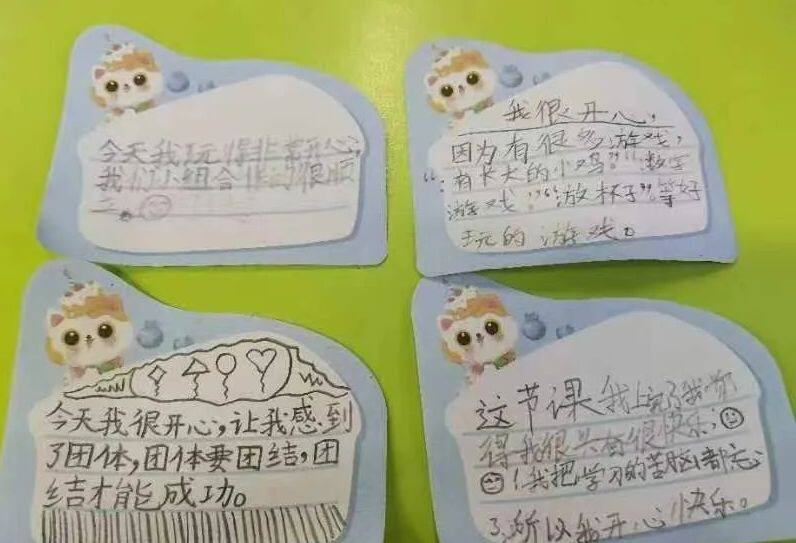 今天我玩得非常开心,
我们小组合作的很顺
我很开心,
因为有很多游戏,
“有长大的小鸡”“数字
游戏”“放杯子”等好
玩的游戏。
今天我很开心,让我感到
了团体,团体要团结,团
结才能成功。
这节课我上完了我觉
得我很兴奋很快乐,
我把学习的苦脑都忘
了,所以我开心快乐。